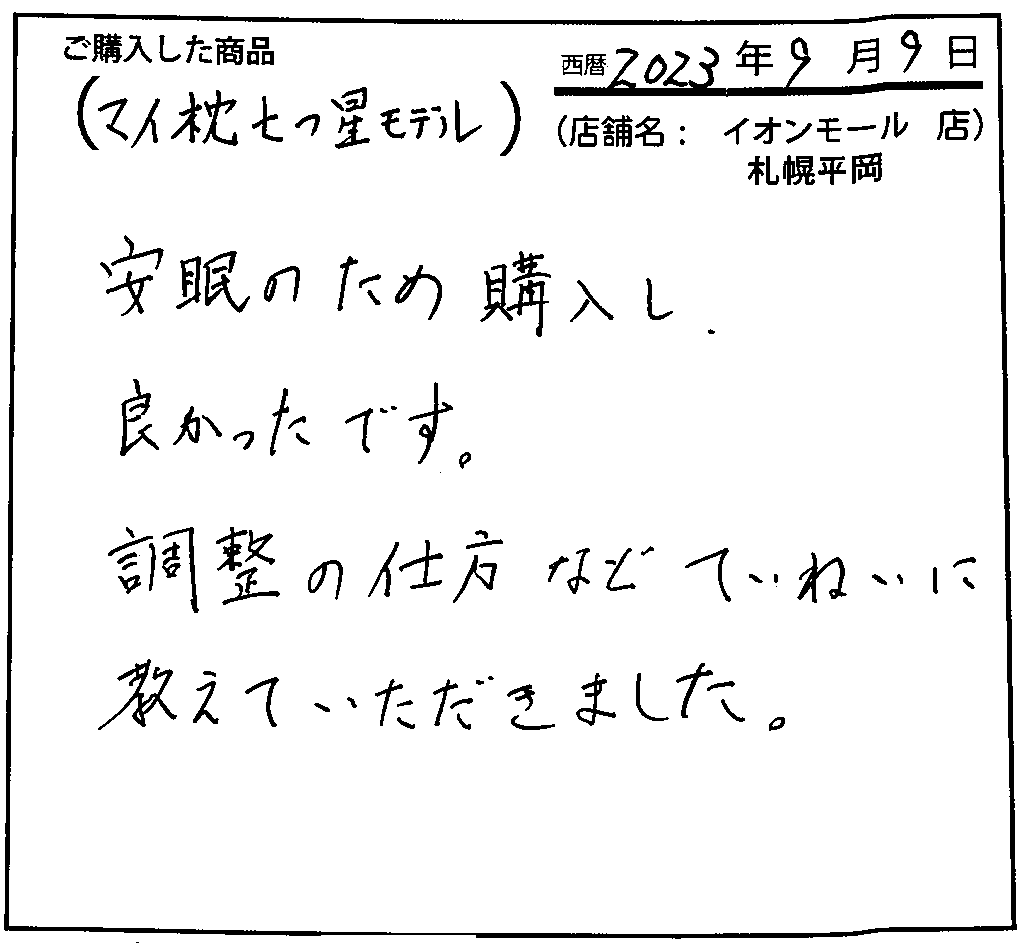 ご購入した商品
西暦 2023 年 9 月 9 日
(マイ枕 七つ星モデル)
(店舗名： イオンモール 店)
札幌平岡
安眠のため購入し.
良かったです。
調整の仕方などていねいに
教えていただきました。